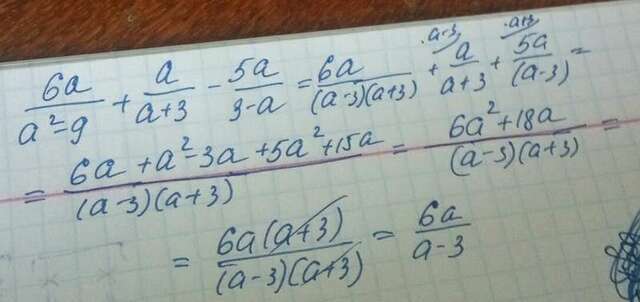 6a/(a²-9) + a/(a+3) - 5a/(3-a) = 6a/((a-3)(a+3)) + a/(a+3) ·a-3 + 5a/(a-3) ·a+3 =
= (6a + a² - 3a + 5a² + 15a)/((a-3)(a+3)) = (6a² + 18a)/((a-3)(a+3)) =
= 6a(a+3)/((a-3)(a+3)) = 6a/(a-3)